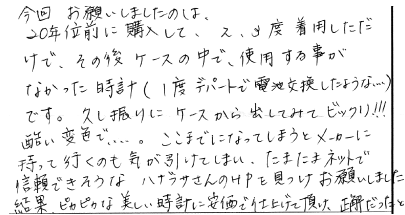 今回 お願いしましたのは、
20年位前に購入して、2、3度着用しただ
けで、その後 ケースの中で、使用する事が
なかった時計(1度デパートで電池交換したような…)
です。久し振りに ケースから出してみてビックリ!!!
酷い変色で……。ここまでになってしまうとメーカーに
持って行くのも気が引けてしまい、たまたまネットで
信頼できそうな ハナブサさんのHPを見つけお願いしました
結果、ピカピカな美しい時計に安価で仕上げて頂け、正解だったと